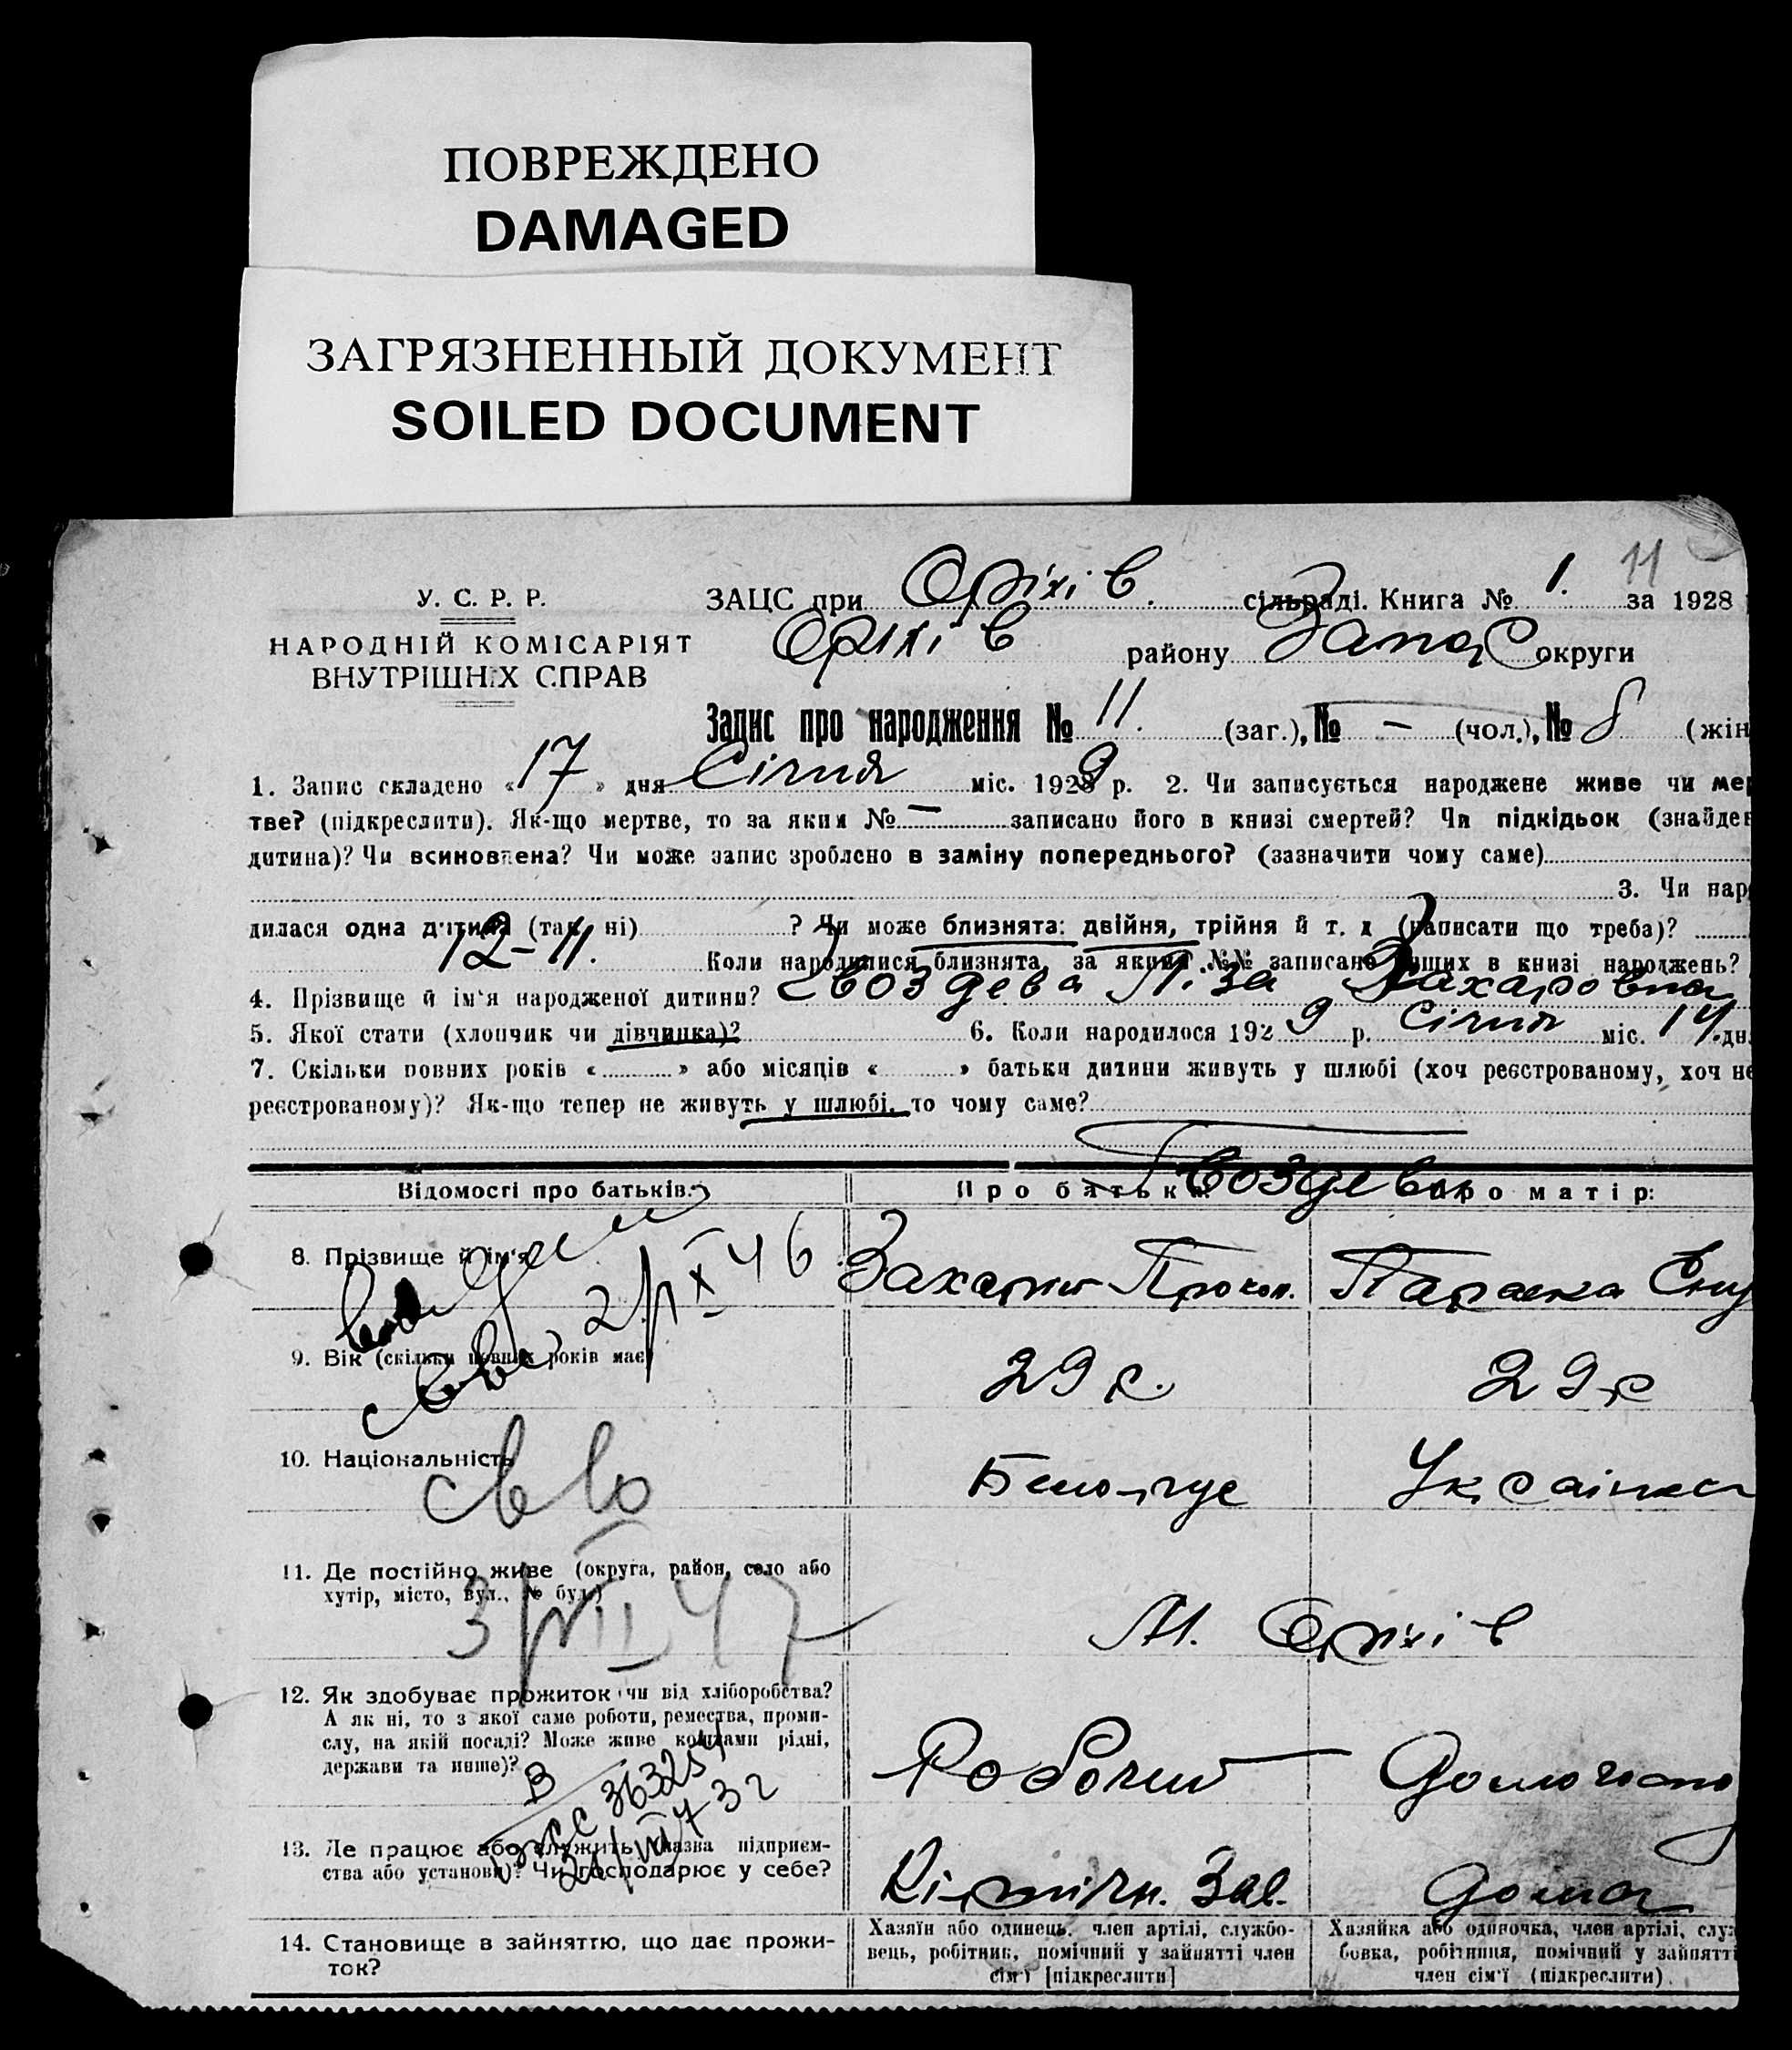 ПОВРЕЖДЕНО
DAMAGED
ЗАГРЯЗНЕННЫЙ ДОКУМЕНТ
SOILED DOCUMENT
11
У. С. Р. Р.
НАРОДНІЙ КОМІСАРІЯТ
ВНУТРІШНІХ СПРАВ
ЗАЦС при Оріхів сільраді. Книга № 1. за 1928
Оріхів району Запор округи
Запис про народження № 11. (заг.), № — (чол.), № 8 (жін
1. Запис складено « 17 » дня Січня міс. 1929 р. 2. Чи записується народжене живе чи мер
тве? (підкреслити). Як-що мертве, то за яким № — записано його в книзі смертей? Чи підкідьок (знайден
дитина)? Чи всиновлена? Чи може запис зроблено в заміну попереднього? (зазначити чому саме)
3. Чи наро
дилася одна дитина (так, ні) ? Чи може близнята: двійня, трійня й т. д (написати що треба)?
12-11. Коли народилися близнята, за якими №№ записано інших в книзі народжень?
4. Прізвище й ім'я народженої дитини? Гвоздева Ліза Захаровна
5. Якої стати (хлопчик чи дівчинка)? 6. Коли народилося 1929 р. Січня міс. 14 дн.
7. Скільки повних років « » або місяців « » батьки дитини живуть у шлюбі (хоч реєстрованому, хоч не
реєстрованому)? Як-що тепер не живуть у шлюбі, то чому саме?
Гвоздеви
Відомості про батьків: Про батька: Про матір:
8. Прізвище й ім'я Захарий Прокоп. Параска
2/IX 46
9. Вік (скільки повних років має) 29 р. 29 р
10. Національність Белорус Українка
св во
11. Де постійно живе (округа, район, село або
хутір, місто, вул., № буд.) М. Оріхів
3/VII 47
12. Як здобуває прожиток чи від хліборобства?
А як ні, то з якої саме роботи, ремества, проми-
слу, на якій посаді? Може живе коштами рідні,
держави та инше)? Робочий Домогоспо
13. Де працює або служить (назва підприєм-
ства або установи)? Чи господарює у себе? Кірпічн. Зав. Дома
14. Становище в зайняттю, що дає прожи-
ток?
Хазяїн або одинець, член артілі, службо-
вець, робітник, помічний у зайнятті член
сім'ї [підкреслити]
Хазяйка або одиночка, член артілі, служ
бовка, робітниця, помічний у зайнятті
член сім'ї (підкреслити)